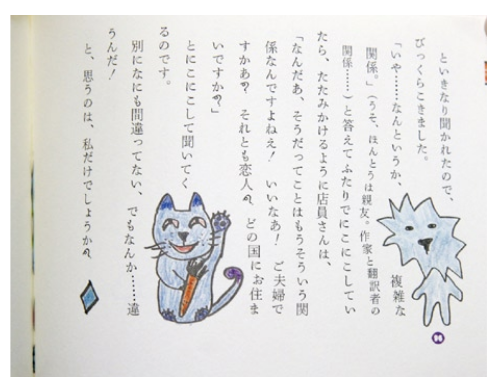 といきなり聞かれたので、
びっくらこきました。
「いや……なんというか、複雑な
関係。」(うそ、ほんとうは親友、作家と翻訳者の
関係……)と答えてふたりでにこにこしてい
たら、たたみかけるように店員さんは、
「なんだあ、そうだってことはもうそういう関
係なんですよねえ! いいなあ! ご夫婦で
すかあ? それとも恋人? どの国にお住ま
いですか?」
とにこにこして聞いてく
るのです。
別になにも間違ってない、でもなんか……違
うんだ!
と、思うのは、私だけでしょうか?